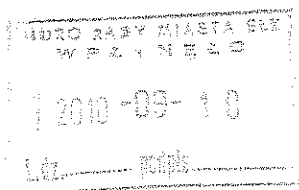 BIURO RADY MIASTA
WPŁYNĘŁO
2010 -09- 10
L.dz. podpis